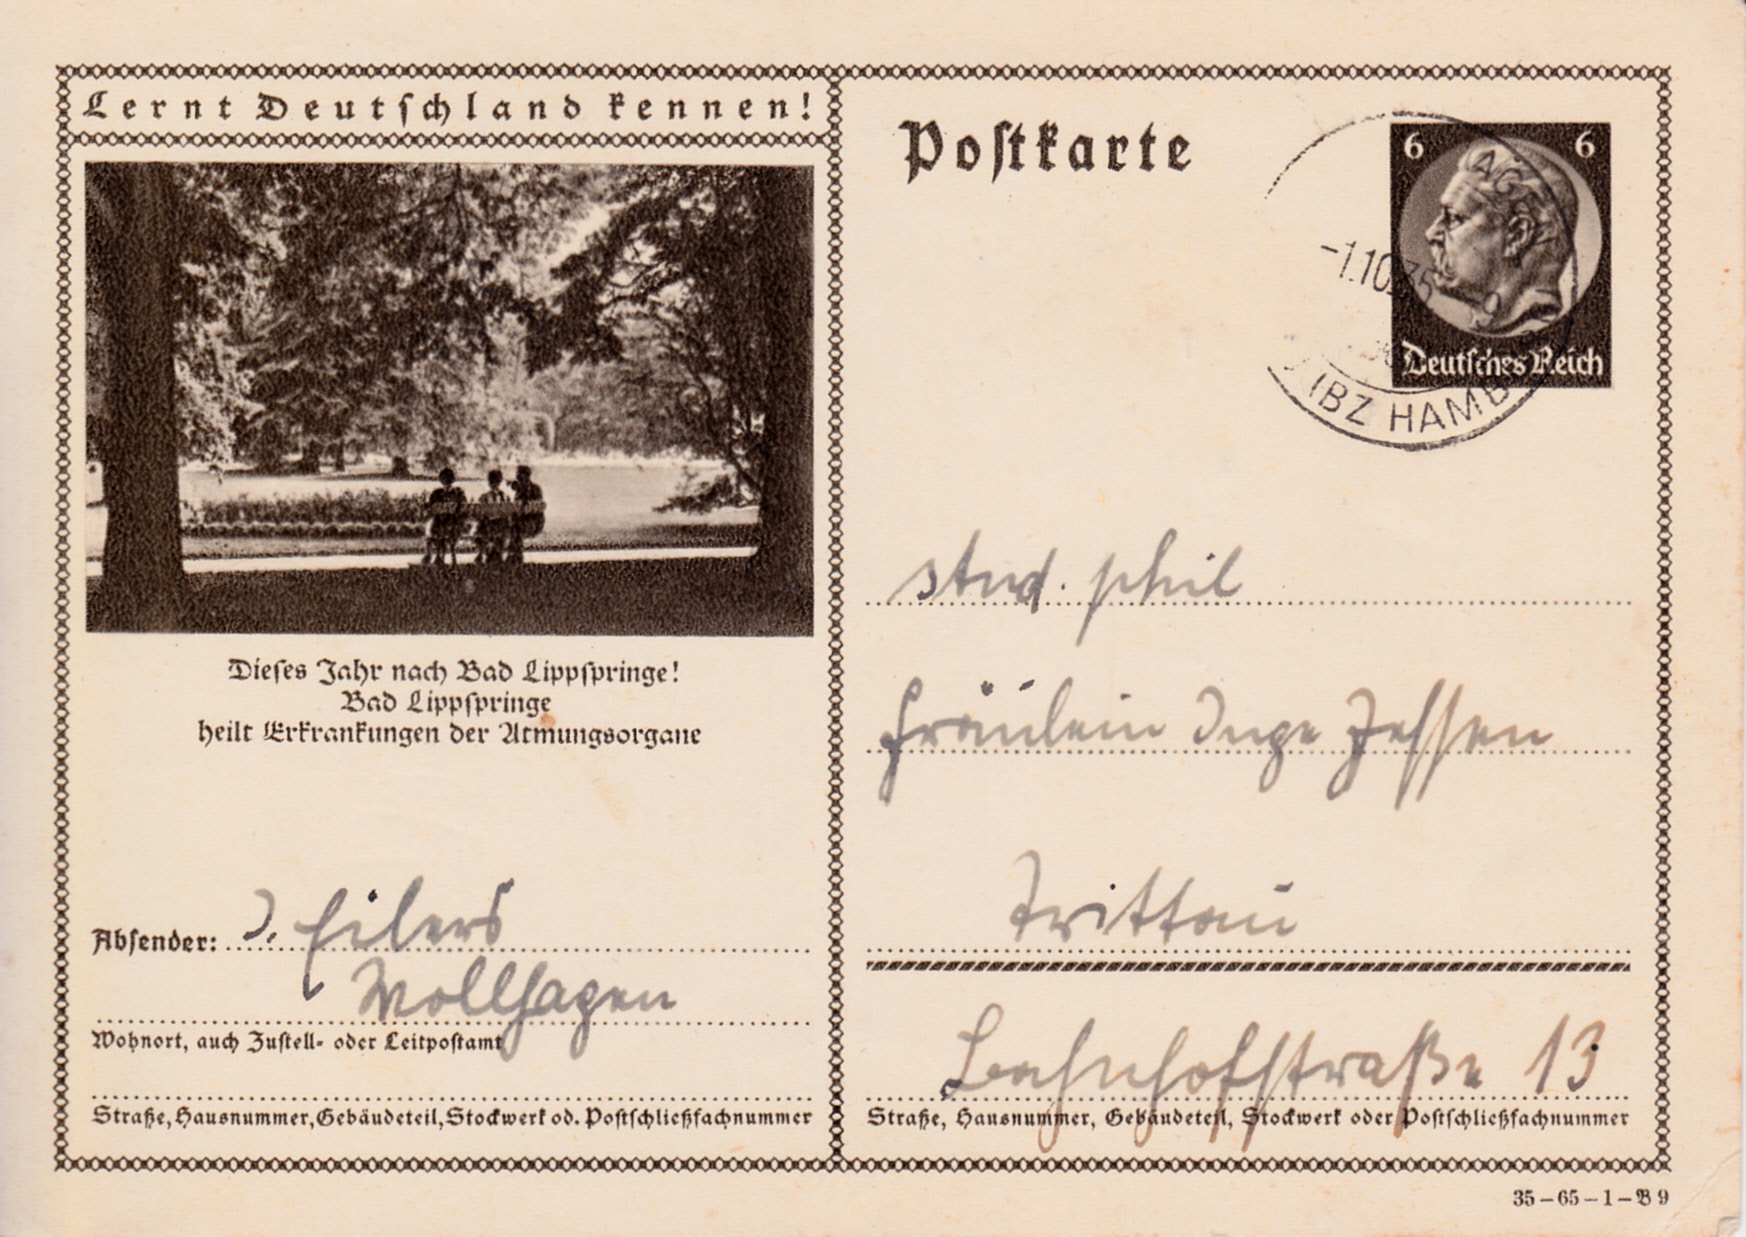 Lernt Deutschland kennen!
Dieses Jahr nach Bad Lippspringe!
Bad Lippspringe
heilt Erkrankungen der Atmungsorgane
Absender: J. Eilers
Wollhagen
Wohnort, auch Zustell- oder Leitpostamt
Straße, Hausnummer, Gebäudeteil, Stockwerk od. Postschließfachnummer
Postkarte
6 6
Deutsches Reich
-1.10.35
(BZ HAMB
stud. phil
Fräulein Inge Jessen
Trittau
Bahnhofstraße 13
Straße, Hausnummer, Gebäudeteil, Stockwerk oder Postschließfachnummer
35-65-1-B9